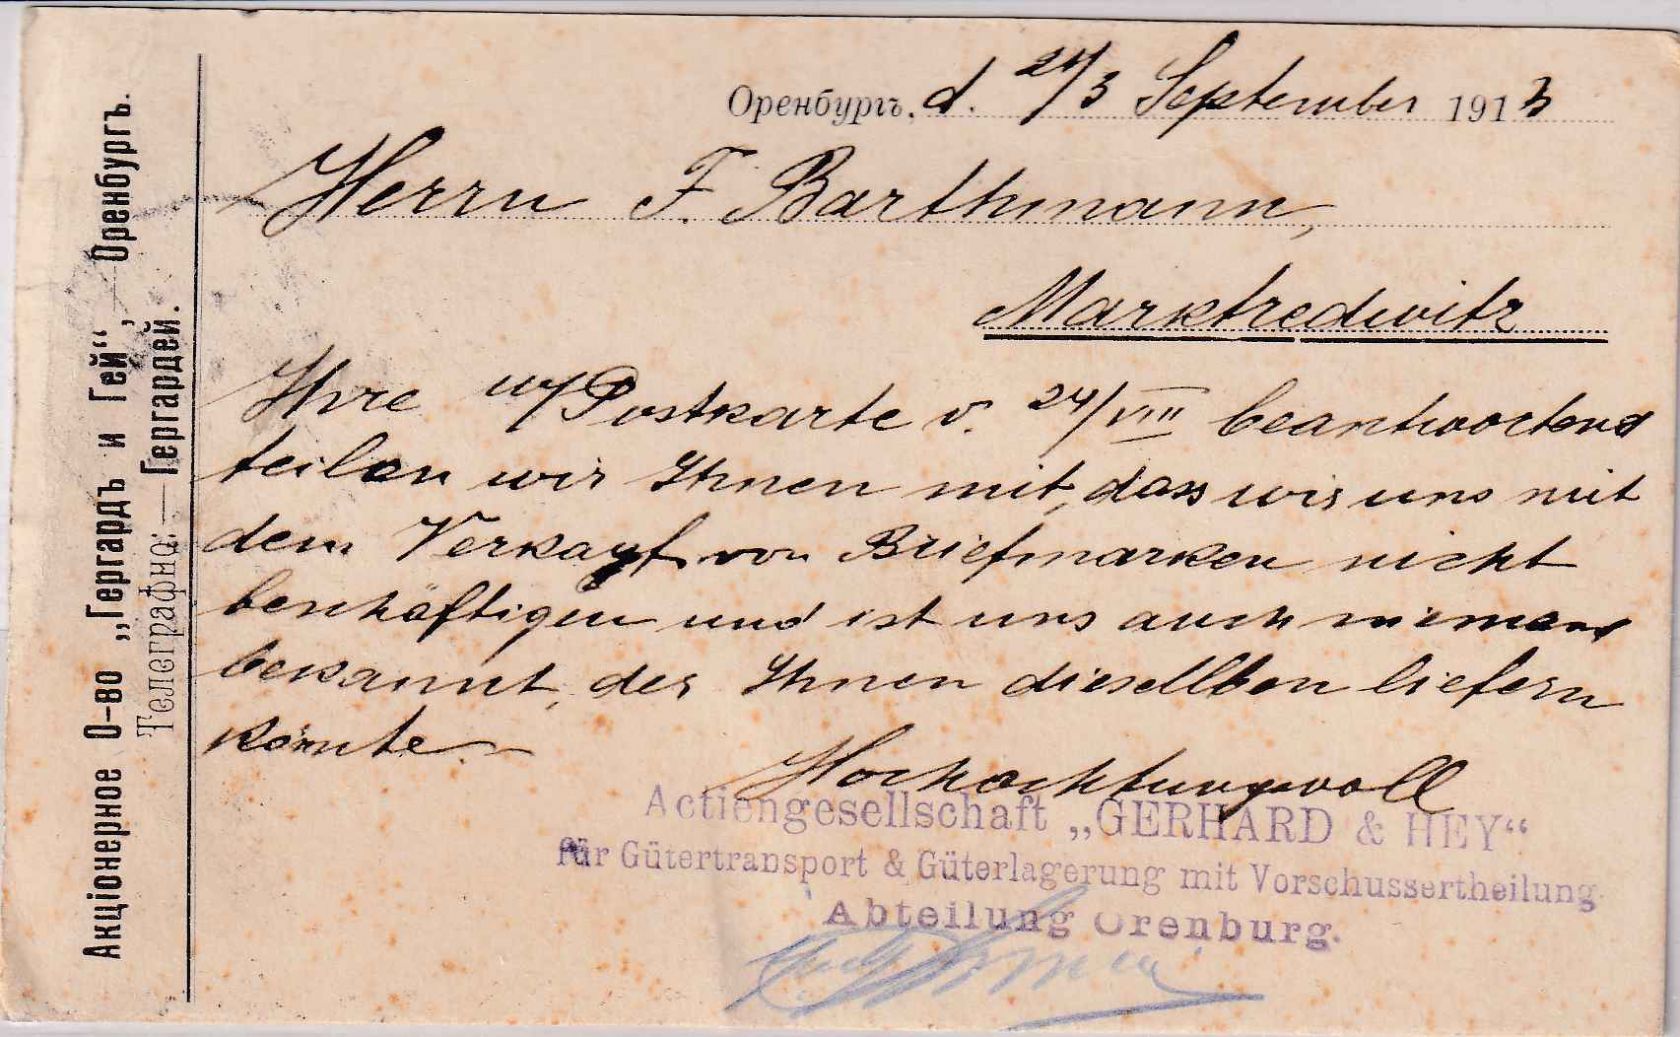 Акціонерное О-во „Гергардъ и Гей“, Оренбургъ.
Телеграфно: — Гергардей.
Оренбургъ, d. 21/3 September 1913
Herrn F. Barthmann,
Marktredwitz
Ihre w/Postkarte v. 24/VIII beantwortend
teilen wir Ihnen mit, dass wir uns mit
dem Verkauf von Briefmarken nicht
beschäftigen und ist uns auch niemand
bekannt, der Ihnen diesellben liefern
könnte.
Hochachtungsvoll
Actiengesellschaft „GERHARD & HEY“
für Gütertransport & Güterlagerung mit Vorschussertheilung
Abteilung Orenburg.